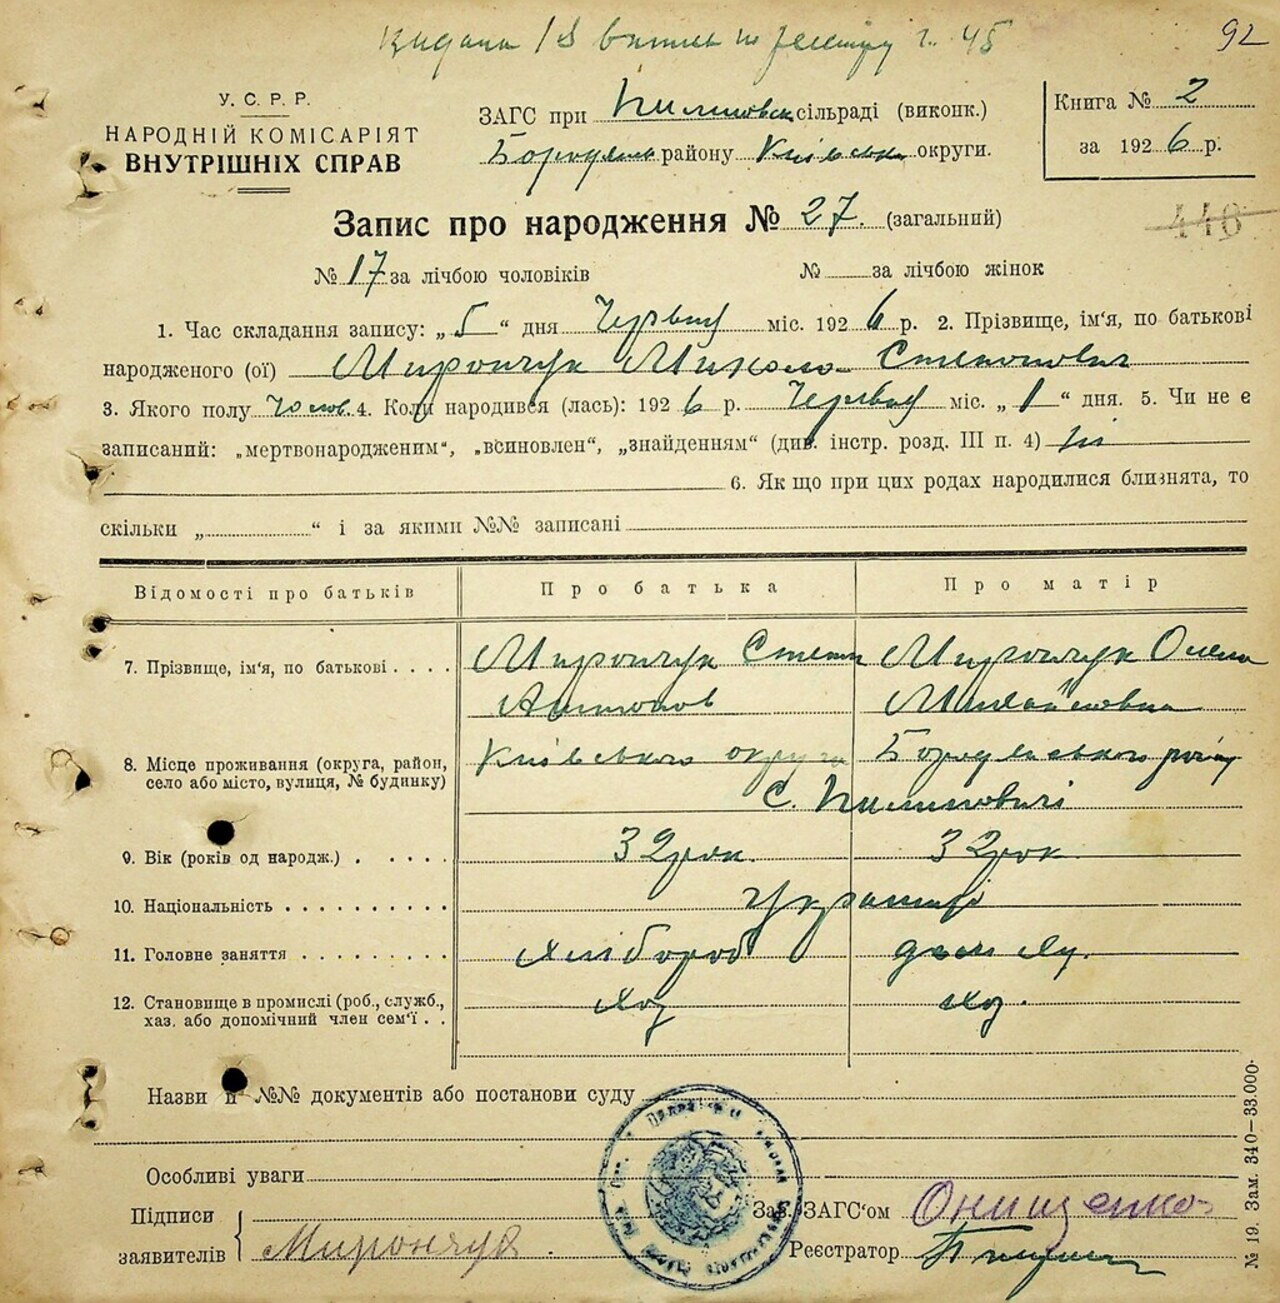 Видана
92
У. С. Р. Р.
НАРОДНІЙ КОМІСАРІЯТ
ВНУТРІШНІХ СПРАВ
ЗАГС при сільраді (виконк.)
району Київськ округи.
Книга № 2
за 1926 р.
Запис про народження № 27. (загальний)
446
№ 17 за лічбою чоловіків № за лічбою жінок
1. Час складання запису: „ 5 “ дня Червня міс. 1926 р. 2. Прізвище, ім'я, по батькові
народженого (ої) Мирончук Микола Степанович
3. Якого полу чолов. 4. Коли народився (лась): 1926 р. Червня міс. „ 1 “ дня. 5. Чи не є
записаний: „мертвонародженим“, „всиновлен“, „знайденням“ (див. інстр. розд. III п. 4) ні
6. Як що при цих родах народилися близнята, то
скільки „ “ і за якими №№ записані
Відомості про батьків Про батька Про матір
7. Прізвище, ім'я, по батькові . . . . Мирончук Степан Мирончук Олена
Антонов Михайловна
8. Місце проживання (округа, район, Київського округа Бородянського
село або місто, вулиця, № будинку) с. Пилиповичі
9. Вік (років од народж.) . . . . . 32 рок. 32 рок
10. Національність . . . . . . . . . . Українці
11. Головне заняття . . . . . . . . . Хлібороб
12. Становище в промислі (роб., служб.,
хаз. або допомічний член сем'ї . . хоз хоз.
Назви й №№ документів або постанови суду
Особливі уваги
Підписи Зав. ЗАГС'ом Онищенко
заявителів Мирончук. Реєстратор
№ 19. Зам. 340—33.000.